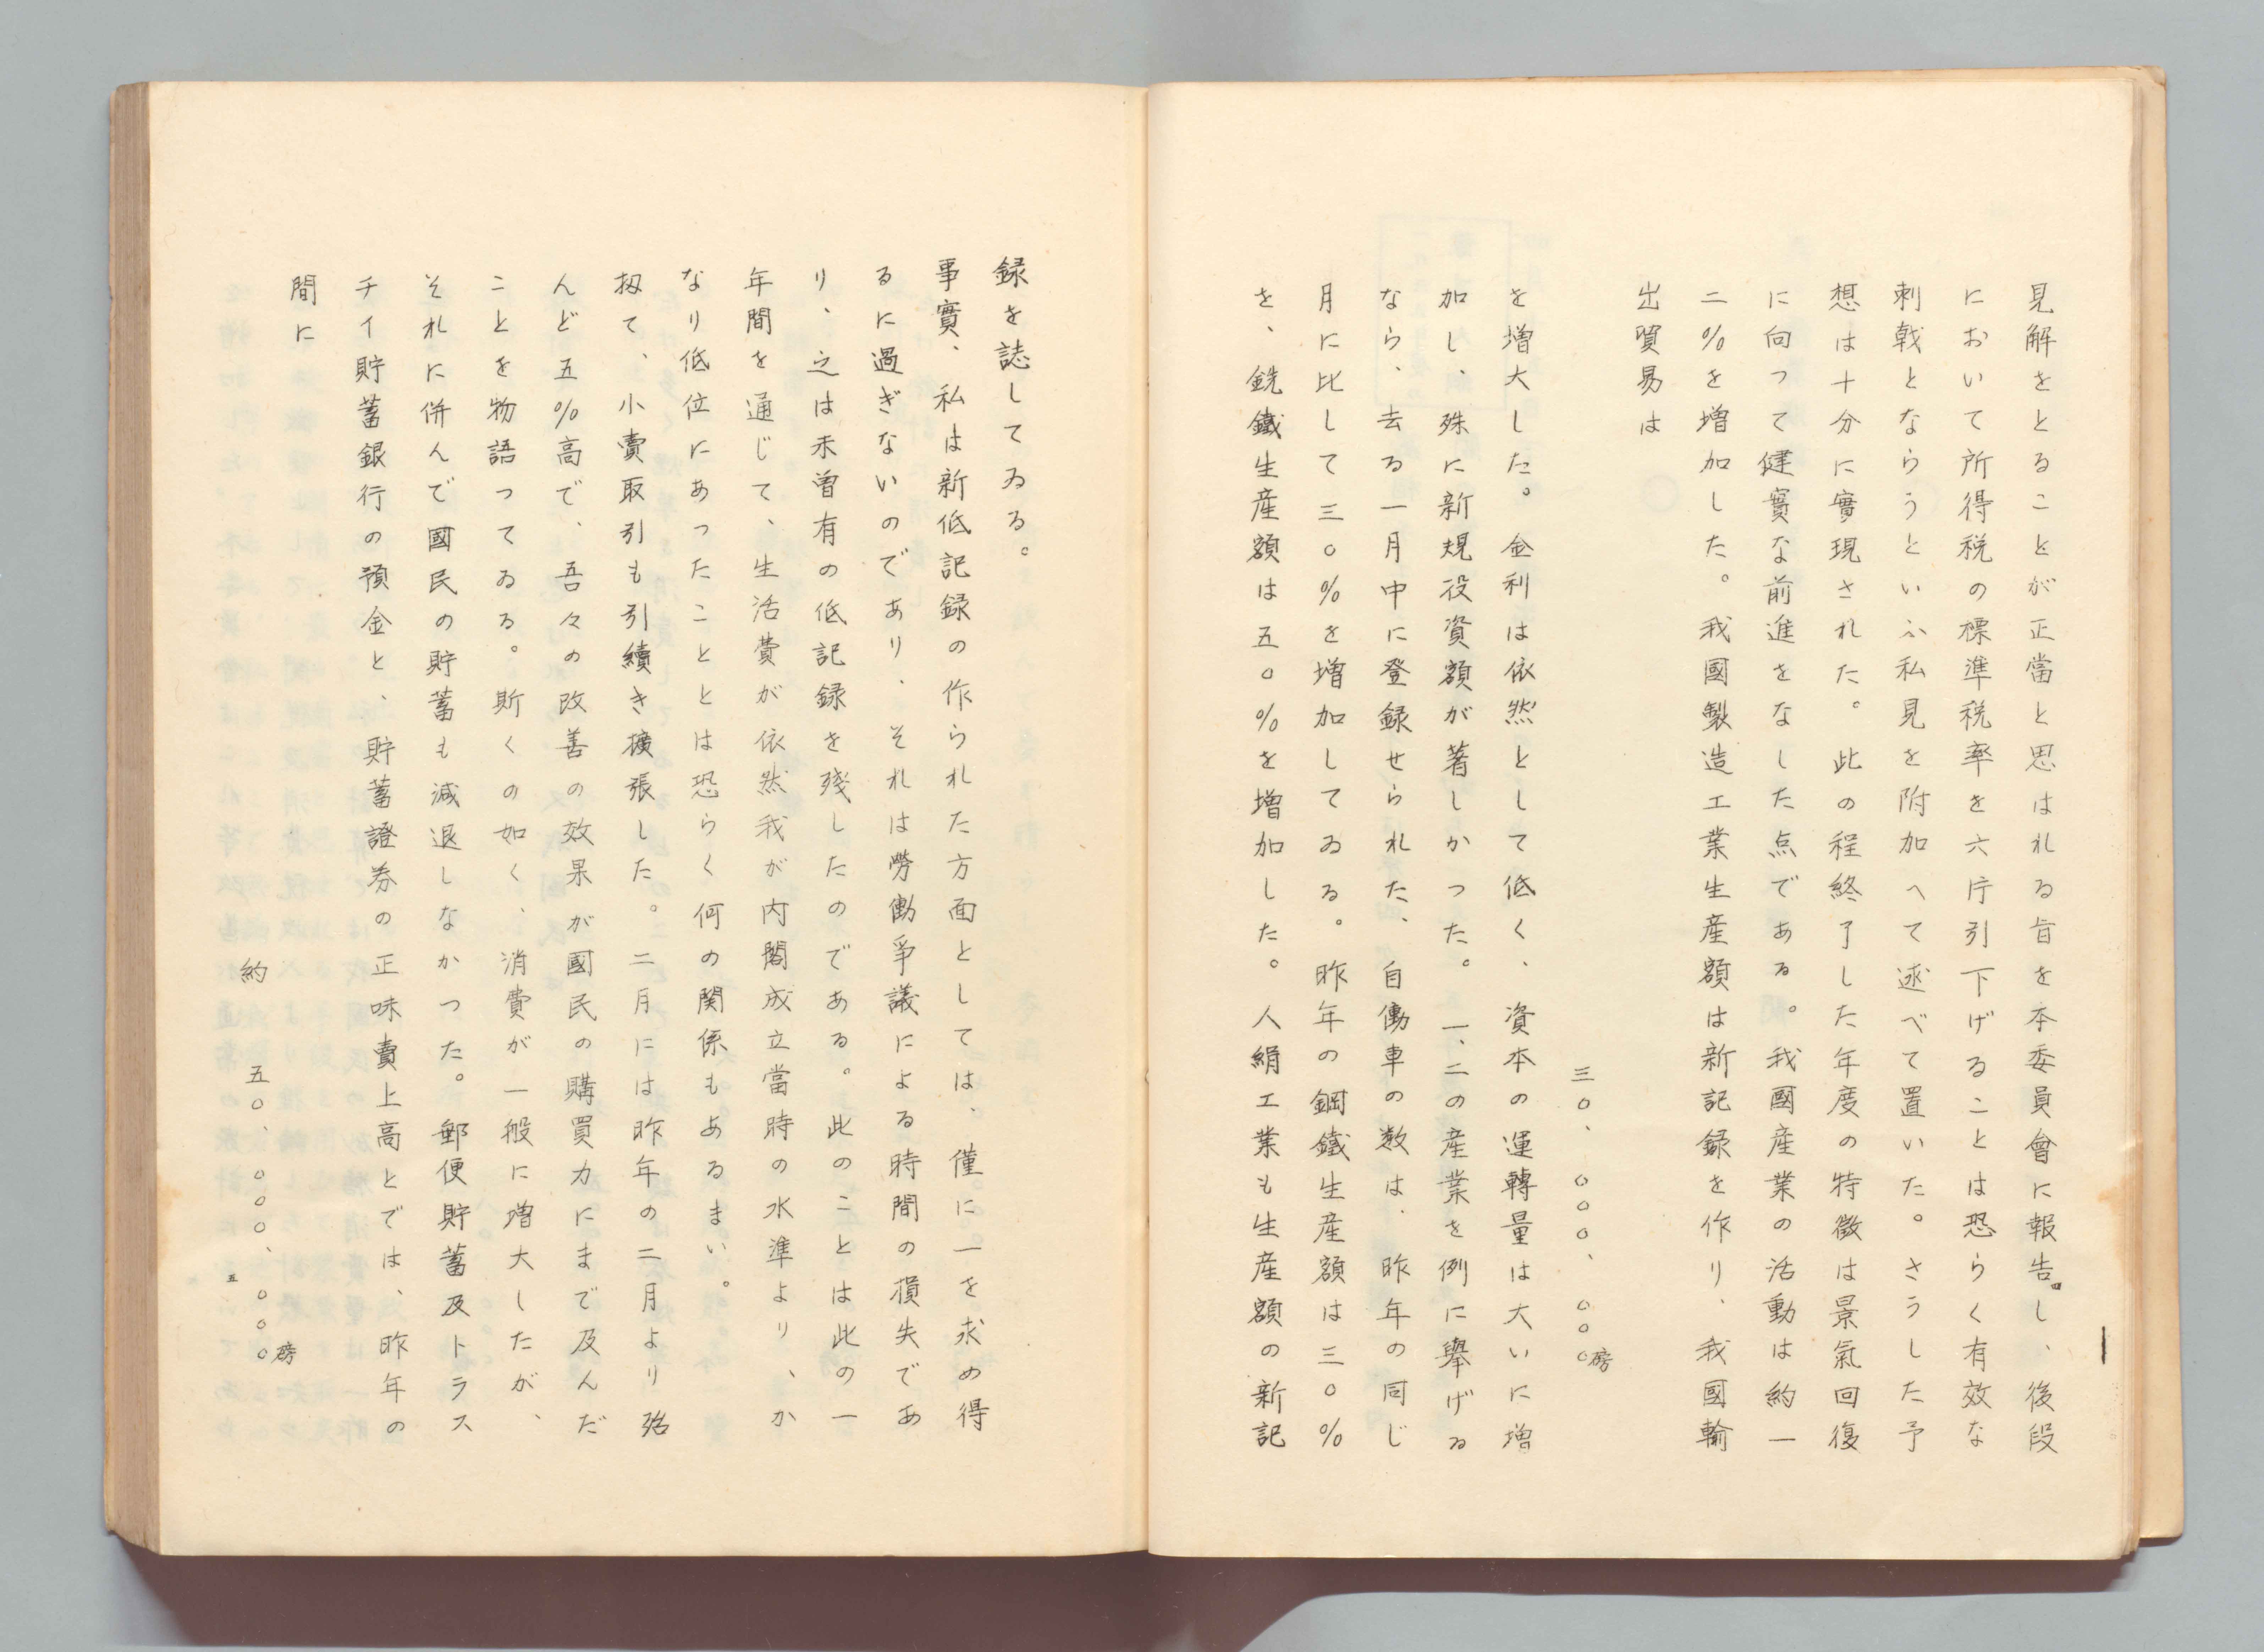 見解をとることが正當と思はれる旨を本委員會に報告し、後段
において所得税の標準税率を六片引下げることは恐らく有效な
刺戟とならうといふ私見を附加へて述べて置いた。さうした予
想は十分に實現された。此の程終了した年度の特徴は景氣回復
に向って健實な前進をなした点である。我國産業の活動は約一
二%を増加した。我國製造工業生産額は新記録を作り、我國輸
出貿易は
三〇、〇〇〇、〇〇〇磅
を増大した。金利は依然として低く、資本の運轉量は大いに増
加し、殊に新規役資額が著しかつた。一、二の産業を例に擧げる
なら、去る一月中に登録せられた、自働車の数は、昨年の同じ
月に比して三〇%を増加してゐる。昨年の鋼鐵生産額は三〇%
を、銑鐵生産額は五〇%を増加した。人絹工業も生産額の新記
録を誌してゐる。
事實、私は新低記録の作られた方面としては、僅に一を求め得
るに過ぎないのであり、それは勞働爭議による時間の損失であ
り、之は未曽有の低記録を残したのである。此のことは此の一
年間を通じて、生活費が依然我が内閣成立當時の水準より、か
なり低位にあったこととは恐らく何の関係もあるまい。
扨て、小賣取引も引續き擴張した。二月には昨年の二月より殆
んど五%高で、吾々の改善の效果が國民の購買力にまで及んだ
ことを物語つてゐる。斯くの如く、消費が一般に増大したが、
それに併んで國民の貯蓄も減退しなかつた。郵便貯蓄及トラス
チイ貯蓄銀行の預金と、貯蓄證券の正味賣上高とでは、昨年の
間に
約　五〇、〇〇〇、〇〇〇磅
五